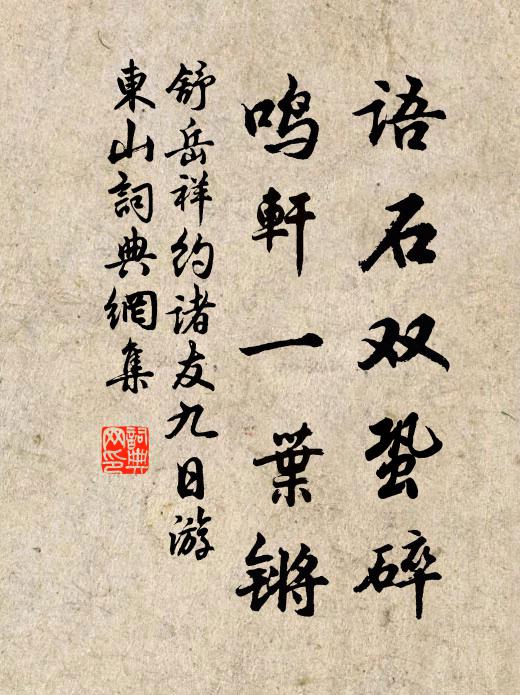 语石双蛩碎
鸣軒一葉锵
舒岳祥约诸友九日游
東山詞典網集
詞典网印